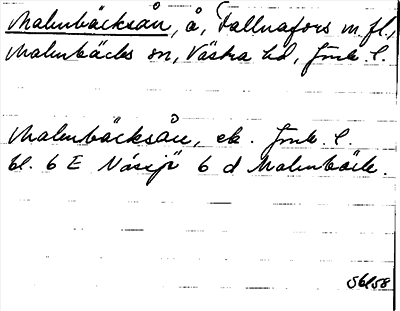 Malmbäcksån, å, Fallnafors m.fl.,
Malmbäcks sn, Västra hd, Jönk. l.
Malmbäcksån, ek. Jönk. l.
bl. 6 E Nässjö 6 d Malmbäck.
56/58